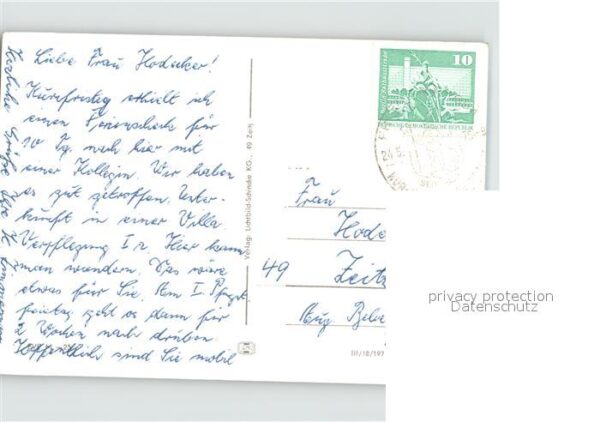 Liebe Frau Hodecker!
Kurzfristig erhielt ich
einen Ferienscheck für
10 Tg. nach hier mit
einer Kollegin. Wir haben
es gut getroffen. Unter-
kunft in einer Villa.
Verpflegung I a. Hier kann
man wandern. Das wäre
etwas für Sie. Am I. Pfingst-
feiertag geht es dann für
2 Wochen nach drüben.
Hoffentlich sind Sie mobil
Herzliche Grüße Ihre H.
Verlag: Lichtbild-Schincke KG., 49 Zeitz
10
DEUTSCHE DEMOKRATISCHE REPUBLIK
Frau
Hode
49 Zeitz
Aug. Bebe
III/18/197
privacy protection
Datenschutz